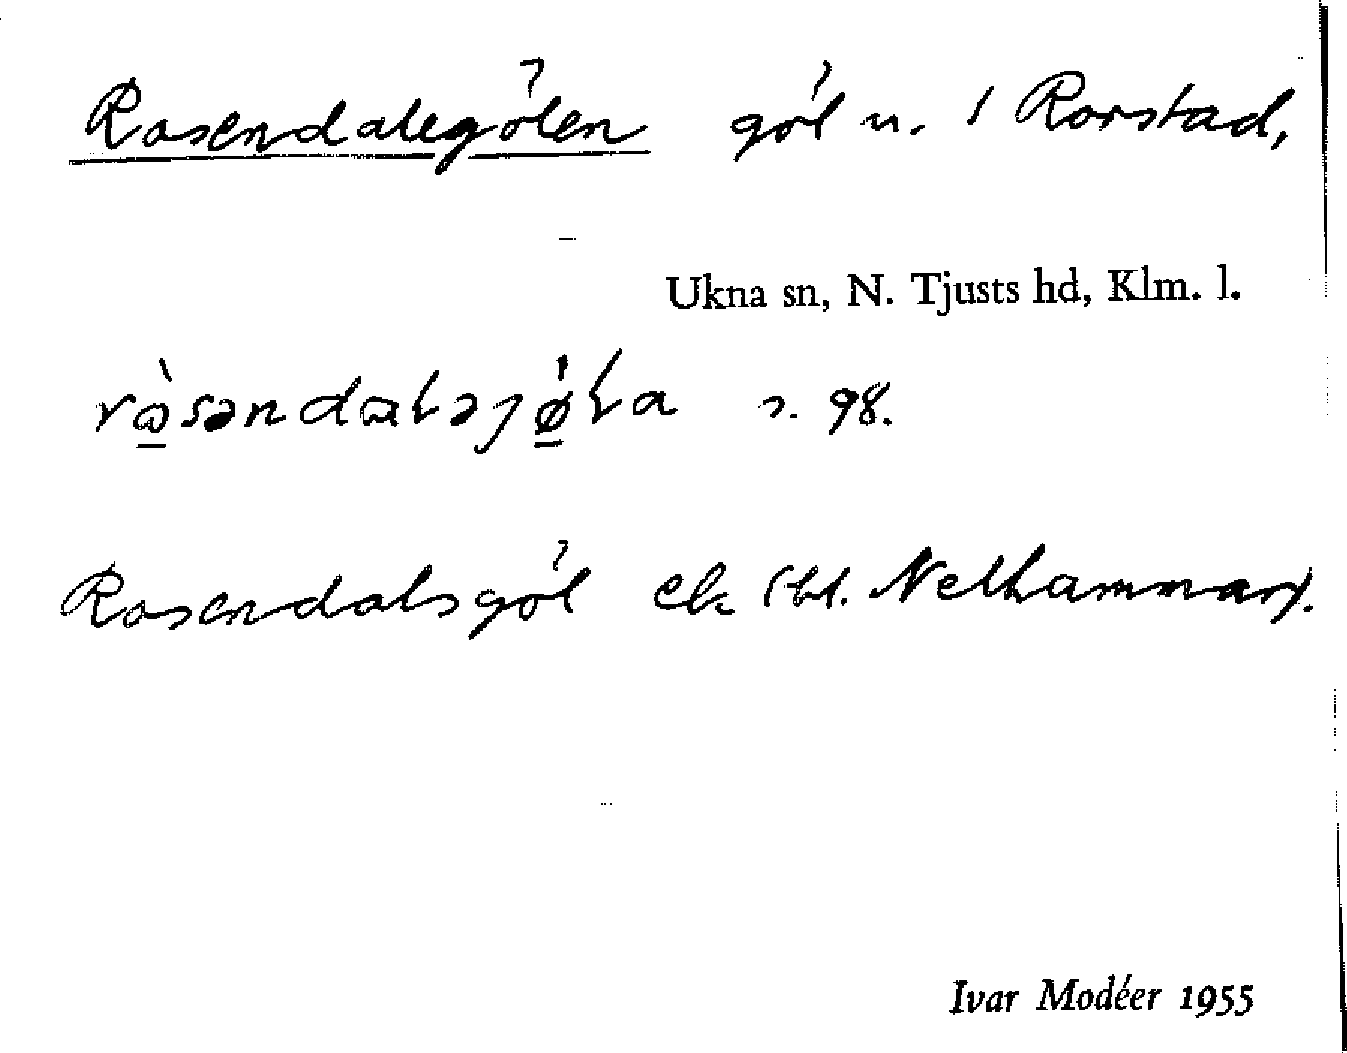 Rosendalegölen göl n. / Rorstad,
Ukna sn, N. Tjusts hd, Klm. l.
s. 98.
Rosendalsgöl ek (bl. Nelhammar).
Ivar Modéer 1955